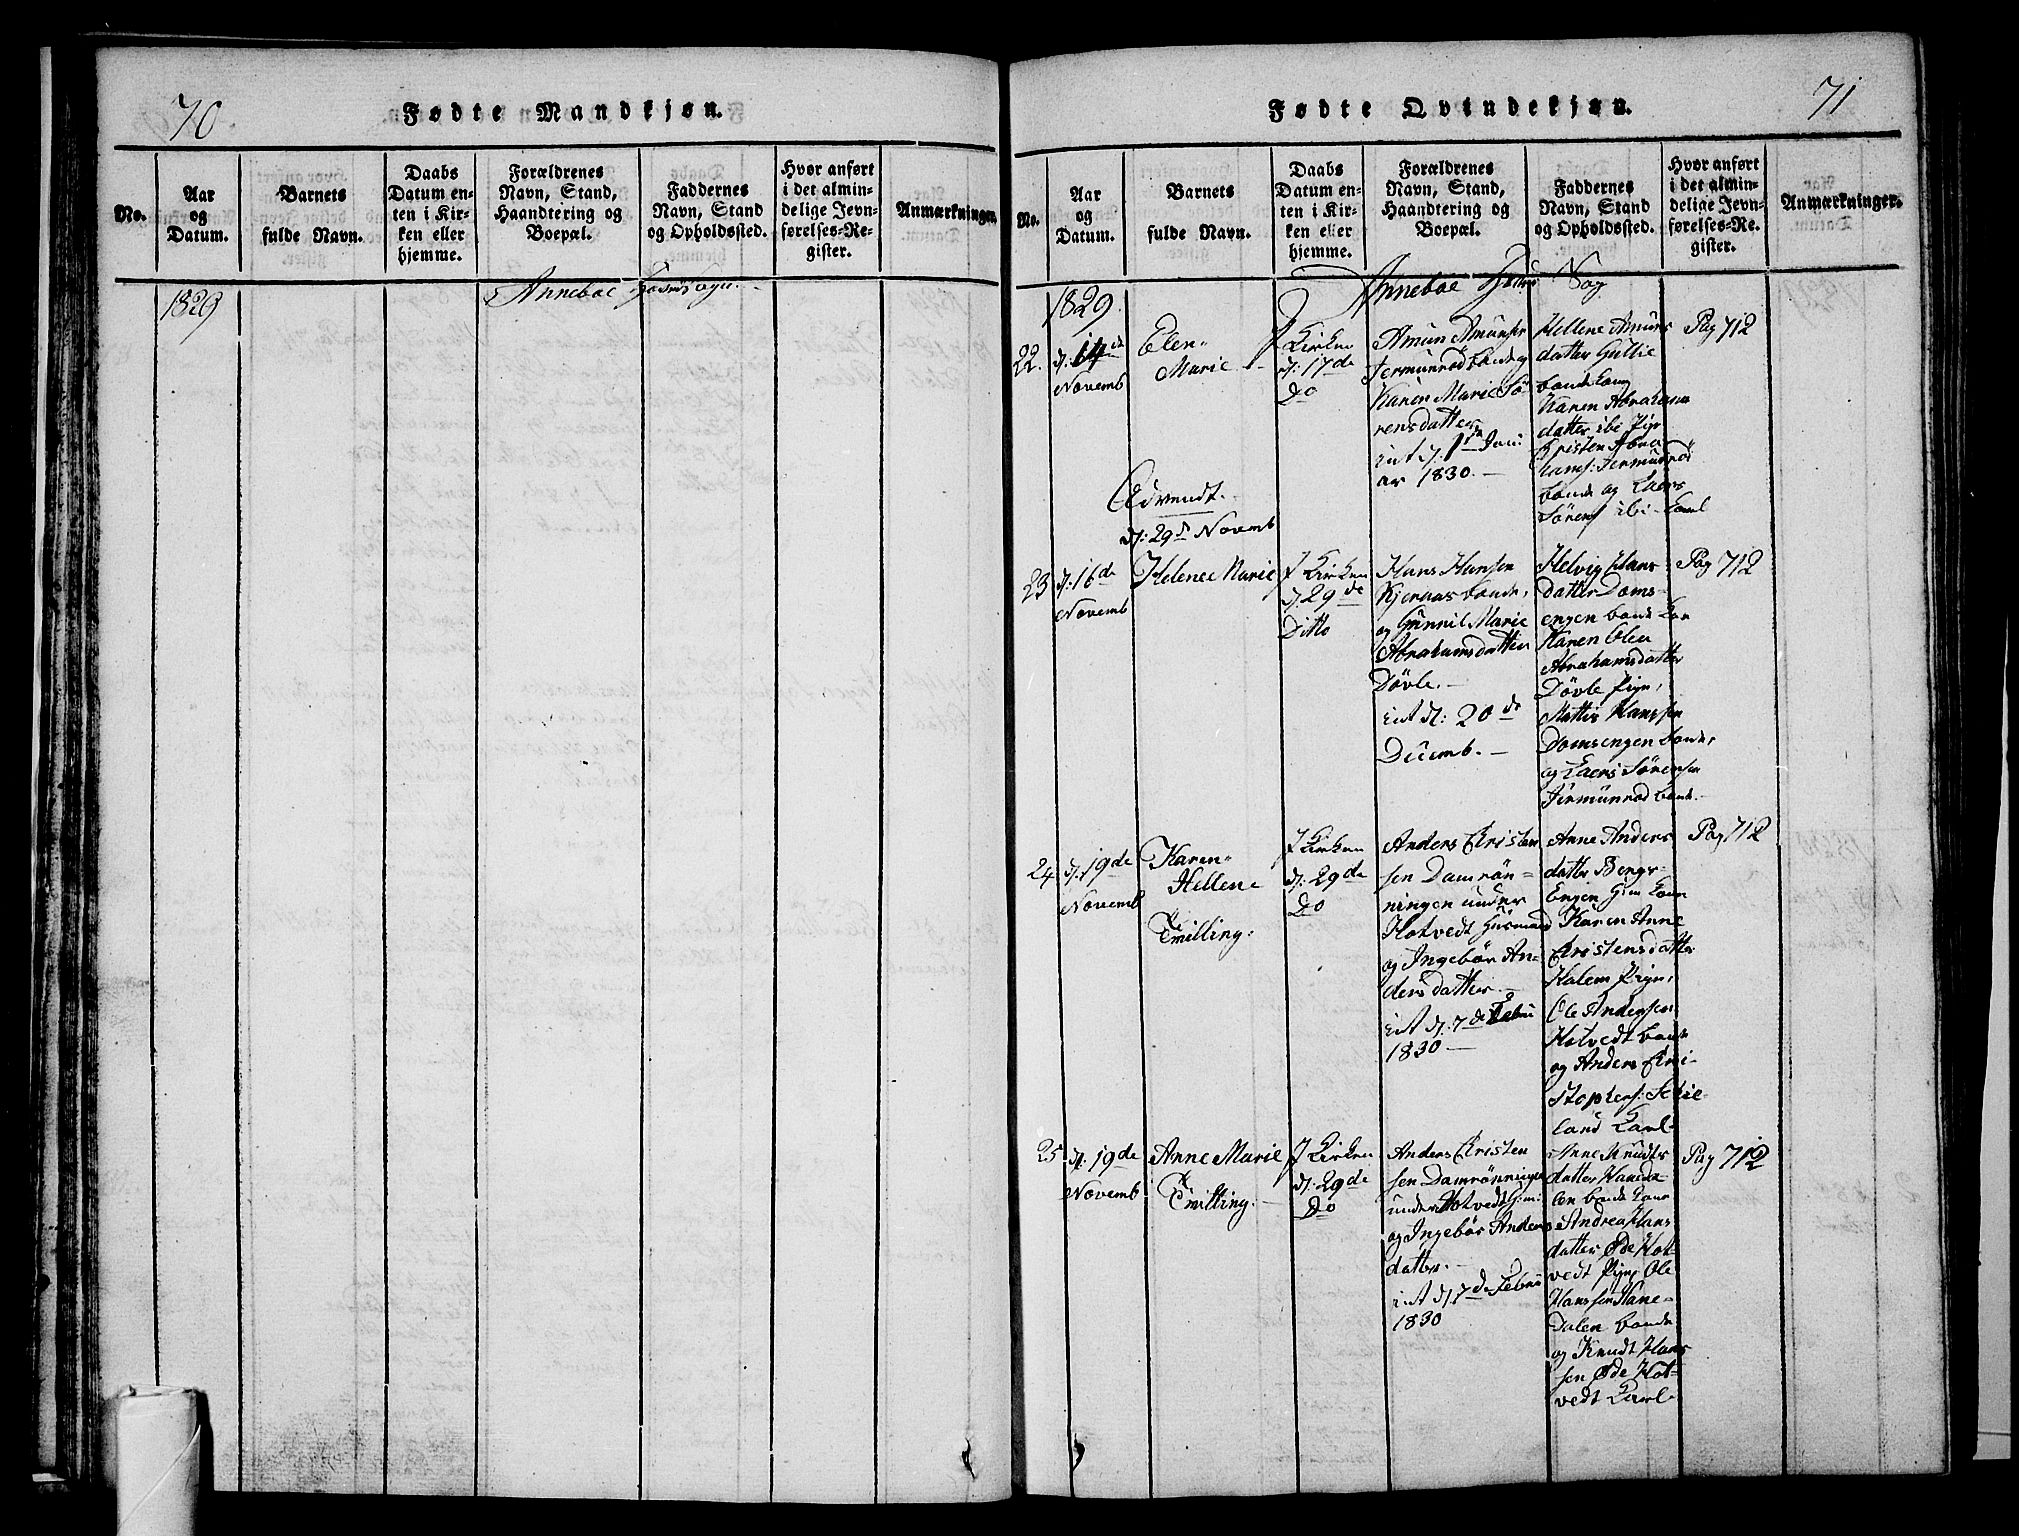 70
Fødte Mandkjøn.
No.
Aar
og
Datum.
Barnets
fulde Navn.
Daabs
Datum en-
ten i Kir-
ken eller
hjemme.
Forældrenes
Navn, Stand,
Haandtering og
Boepæl.
Faddernes
Navn, Stand
og Opholdssted.
Hvor anført
i det almin-
delige Jevn-
førelses-Re-
gister.
Anmærkninger.
1829
Anneboe
71
Fødte Qvindekjøn.
No.
Aar
og
Datum.
Barnets
fulde Navn.
Daabs
Datum en-
ten i Kir-
ken eller
hjemme.
Forældrenes
Navn, Stand,
Haandtering og
Boepæl.
Faddernes
Navn, Stand
og Opholdssted.
Hvor anført
i det almin-
delige Jevn-
førelses-Re-
gister.
Anmærkninger.
1829
Anneboe
22.
d: 14de
Novemb
Elen
Marie
J Kirken
d: 17de
Do
Amun Amunsen
Karen Marie Sö
rensdatter
int d: 1
ar 1830.
Hellene Amuns
datter Gullie
Karen Abraham
datter ibi Pige
Kristen Abra
hams: Jermunrød
bonde og Laers
Sörens ibi
Pag 712
Advendt.
d: 29 Novemb
23
d: 16de
Novemb
Helene Marie
J Kirken
d: 29de
Ditto
Hans Hansen
Kjernaas bonde,
og Gunnil Marie
Abrahamsdatter
Dövle.
int d: 20de
Decemb.
Helvig Hans
datter Doms-
engen bonde
Karen Olea
Abrahamsdatter
Dövle Pige,
Mattis Hanssen
Domsengen bonde,
og Laers Sörensen
Jermunrød bonde.
Pag 712
24
d: 19de
Novemb
Karen
Hellene
Tvilling.
J Kirken
d: 29de
Do
Anders Cristen
sen Damrön-
ningen under
Hotvedt Husmand
og Ingebör An-
dersdatter.
int d: 7de Febru
1830
Anne Anders
datter Bergs-
Engen
Karen Anne
Cristensdatter
Holem Pige,
Ole Andersen
Hotvedt bonde
og Anders Cri-
stophers:
land Karl
Pag 712
25
d: 19de
Novemb
Anne Marie
Tvilling.
J Kirken
d: 29de
Do
Anders Cristen
sen Damrönningen
under Hotvedt
og Ingebör Anders
datter.
int d 7de Febru
1830
Anne Knudts
datter Haneda
len bonde
Andrea Hans
datter Øde Hot-
vedt Pige Ole
Hanssen Hane-
Dalen bonde
og Knudt Hans
sen Øde Hot-
vedt Karl
Pag 712